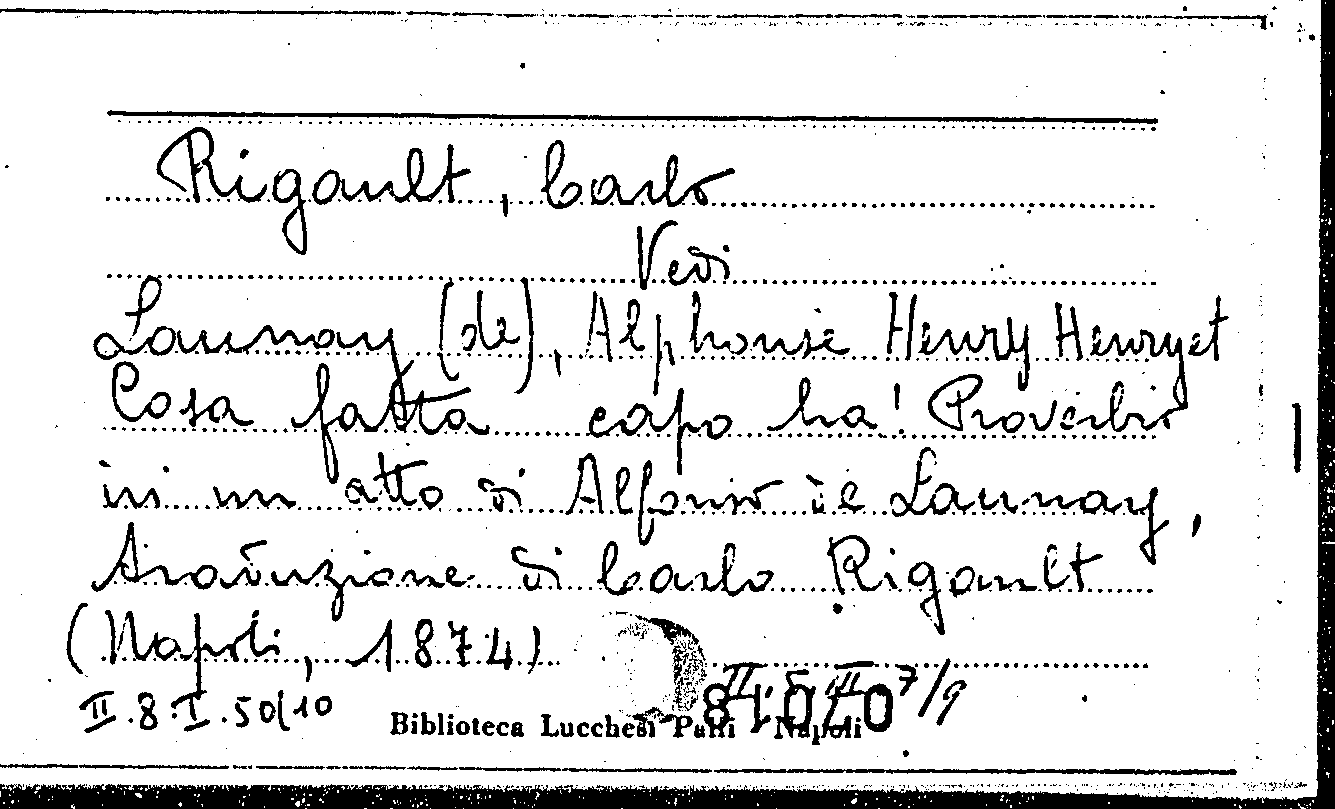 Rigault, Carlo
Vedi
Launay (de), Alphonse Henry Henryet
Cosa fatta capo ha! Proverbio
in un atto di Alfonso de Launay,
traduzione di Carlo Rigault
(Napoli, 1874)
II.8.I.50(10
Biblioteca Lucchesi Palli Napoli